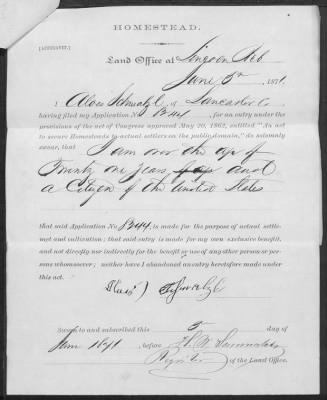 HOMESTEAD.
[AFFIDAVIT.]
Land Office at Lincoln Neb
June 5th, 1871.
I Alois Schwalzl, of Lancaster Co
having filed my Application No. 8244, for an entry under the
provisions of the act of Congress approved May 20, 1862, entitled "An act
to secure Homesteads to actual settlers on the public domain," do solemnly
swear, that I am over the age of
Twenty one years and
a Citizen of the United States
that said Application No. 8244, is made for the purpose of actual settle-
ment and cultivation; that said entry is made for my own exclusive benefit,
and not directly nor indirectly for the benefit or use of any other person or per-
sons whomsoever; neither have I abandoned an entry heretofore made under
this act.
Sworn to and subscribed this 5 day of
June 1871 before
Register of the Land Office.